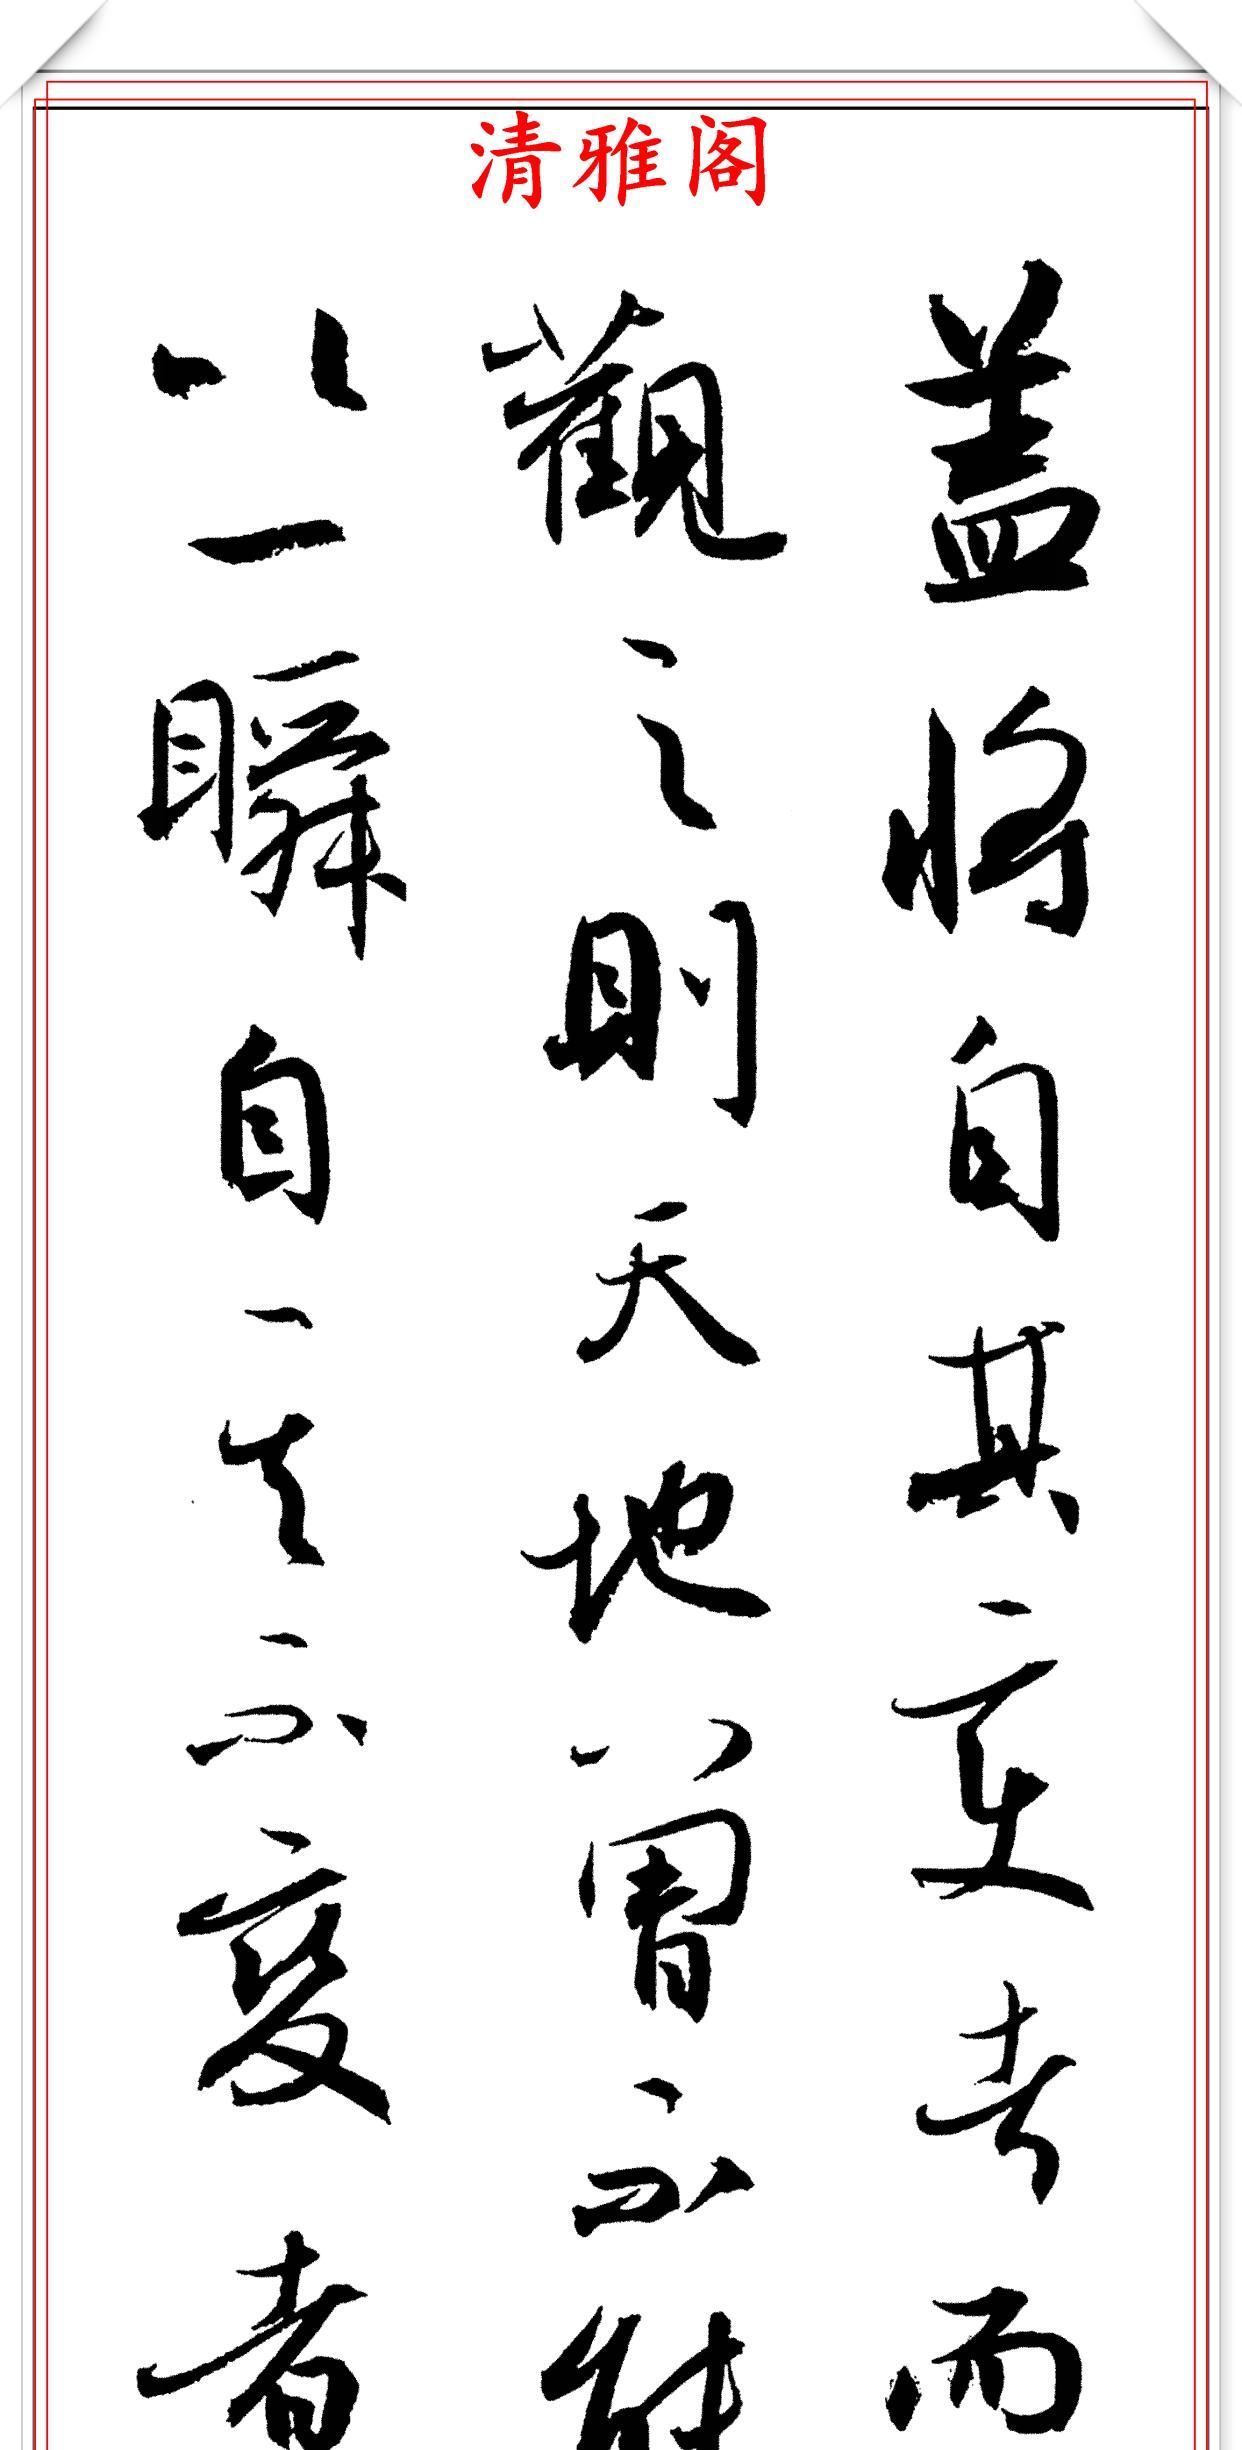 清雅阁
盖将自其變者而
觀之則天地曾不能
以一瞬自其不變者